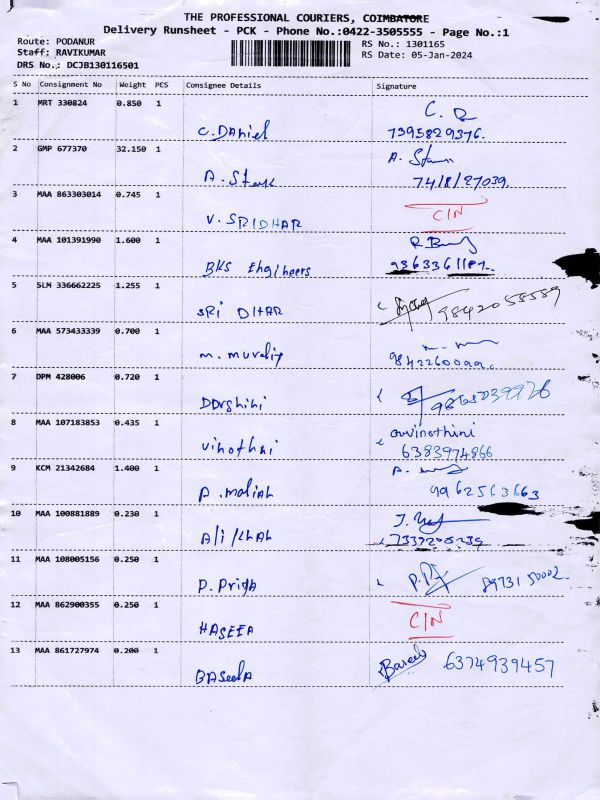 THE PROFESSIONAL COURIERS, COIMBATORE
Delivery Runsheet - PCK - Phone No.:0422-3505555 - Page No.:1
Route: PODANUR
RS No.: 1301165
Staff: RAVIKUMAR
RS Date: 05-Jan-2024
DRS No.: DCJB130116501
S No Consignment No Weight PCS Consignee Details Signature
1 MRT 330824 0.850 1
C. Daniel 7395829376.
2 GMP 677370 32.150 1
A. 74/8/27039.
3 MAA 863303014 0.745 1
V. SRIDHAR C/N
4 MAA 101391990 1.600 1
BKS Engineers 9363361187.
5 SLM 336662225 1.255 1
SRI DHAR 9842055589
6 MAA 573433339 0.700 1
m. 9842260099.
7 DPM 428006 0.720 1
9865039926
8 MAA 107183853 0.435 1
ovvinothini
6383974866
9 KCM 21342684 1.400 1
9962563663
10 MAA 100881889 0.230 1
7337205239
11 MAA 108005156 0.250 1
P. Priya 8973150002.
12 MAA 862900355 0.250 1
HASEEA C/N
13 MAA 861727974 0.200 1
BASeelA 6374939457